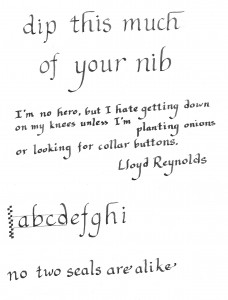 dip this much
of your nib
I'm no hero, but I hate getting down
on my knees unless I'm planting onions
or looking for collar buttons.
Lloyd Reynolds
abcdefghi
no two seals are alike